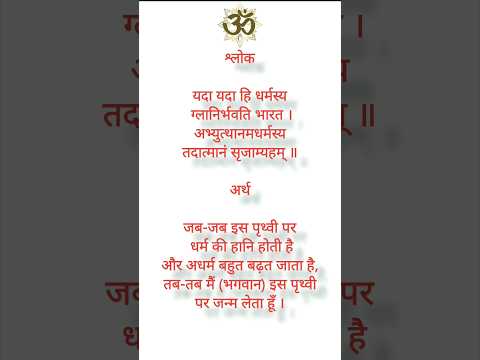 ॐ
श्लोक
यदा यदा हि धर्मस्य
ग्लानिर्भवति भारत ।
अभ्युत्थानमधर्मस्य
तदात्मानं सृजाम्यहम् ॥
अर्थ
जब-जब इस पृथ्वी पर
धर्म की हानि होती है
और अधर्म बहुत बढ़त जाता है,
तब-तब मैं (भगवान) इस पृथ्वी
पर जन्म लेता हूँ ।